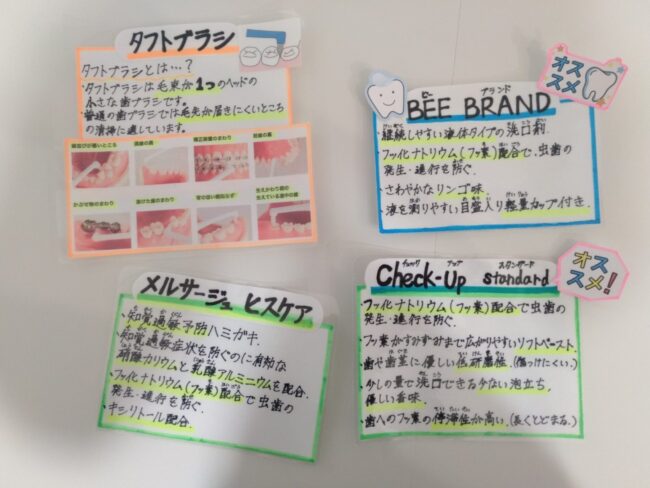 タフトブラシ
タフトブラシとは…？
・タフトブラシは毛束が1つのヘッドの
小さな歯ブラシです。
普通の歯ブラシでは毛先が届きにくいところ
の清掃に適しています。
歯並びが悪いところ
奥歯の裏
矯正装置のまわり
前歯の裏
かぶせ物のまわり
抜けた歯のまわり
背の低い親知らず
生えかわり期の
生えている途中の歯
オス
スメ
ビー ブランド
BEE BRAND
・継続しやすい液体タイプの洗口剤.
・フッ化ナトリウム(フッ素)配合で、虫歯の
発生・進行を防ぐ.
・さわやかなリンゴ味.
・液を測りやすい目盛入り軽量カップ付き.
メルサージュ ヒスケア
・知覚過敏予防ハミガキ.
・知覚過敏症状を防ぐのに有効な
硝酸カリウムと乳酸アルミニウムを配合.
・フッ化ナトリウム(フッ素)配合で虫歯の
発生・進行を防ぐ.
・キシリトール配合.
オス
スメ!
チェック アップ スタンダード
Check-Up standard
・フッ化ナトリウム(フッ素)配合で虫歯の
発生・進行を防ぐ.
・フッ素がすみずみまで広がりやすいソフトペースト.
・歯や歯茎に優しい低研磨性.(傷つけにくい。)
・少しの量で洗口できる少ない泡立ち.
優しい香味.
・歯へのフッ素の停滞性が高い.(長くとどまる.)